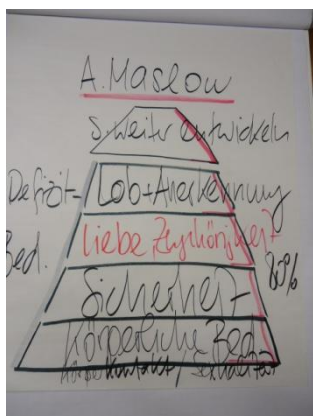 A. Maslow
S. weiter entwickeln
Defizit-
Lob + Anerkennung
Bed.
Liebe Zugehörigkeit
80%
Sicherheit
Körperliche Bed.
Körperkontakt / Sexualität